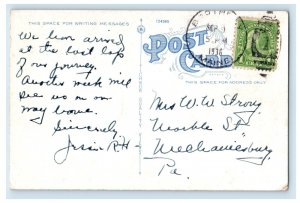 THIS SPACE FOR WRITING MESSAGES
We have arrived
at the last lap
of our journey.
Another week will
see us on our
way home.
Sincerely
Jessie R H-
124398
POST
CA
THIS SPACE FOR ADDRESS ONLY
MAINE
1936
Mrs W. W Strong
Marble St
Mechanicsburg
Pa.